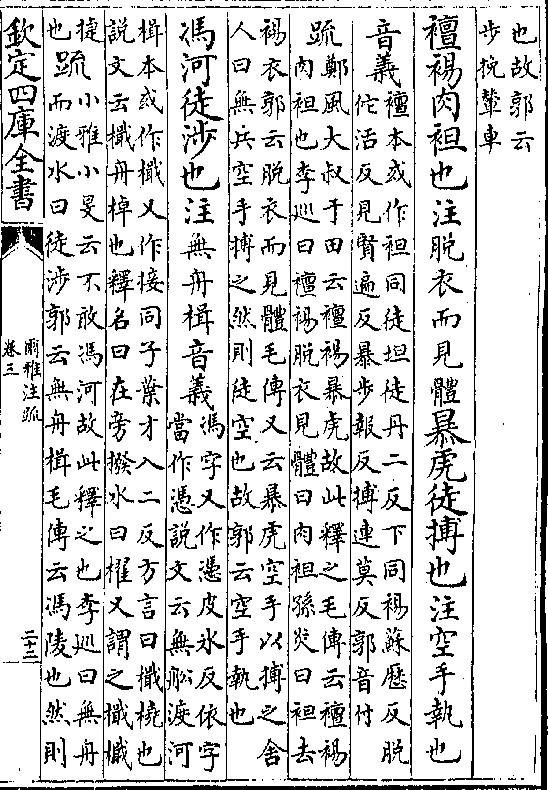 也故郭云
步挽輦車
襢裼肉袒也注脫衣而見體暴虎徒搏也注空手執也
音義襢本或作袒同徒坦徒丹二反下同裼蘇歷反脫
佗活反見賢遍反暴步報反搏連莫反郭音付
疏鄭風大叔于田云襢裼暴虎故此釋之毛傳云襢裼
肉袒也李巡曰襢裼脫衣見體曰肉袒孫炎曰袒去
裼衣郭云脫衣而見體毛傳又云暴虎空手以搏之舍
人曰無兵空手搏之然則徒空也故郭云空手執也
馮河徒涉也注無舟楫音義馮字又作憑皮冰反依字
當作憑說文云無舩渡河
楫本或作檝又作接同子葉才入二反方言曰檝橈也
說文云檝舟棹也釋名曰在旁撥水曰櫂又謂之檝檝
捷也疏小雅小旻云不敢馮河故此釋之也李巡曰無舟
而渡水曰徒涉郭云無舟楫毛傳云馮陵也然則
欽定四庫全書
爾雅注疏
卷三
二十三